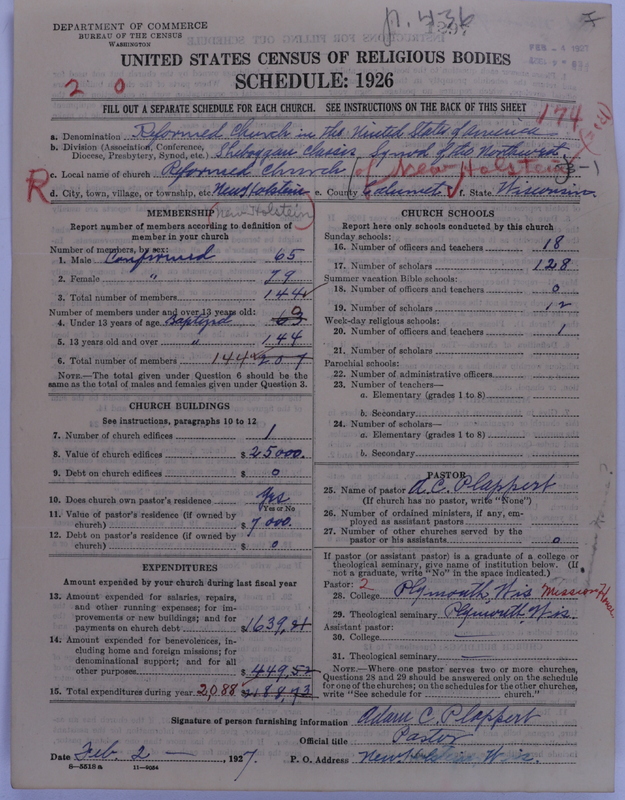 p. 436
DEPARTMENT OF COMMERCE
BUREAU OF THE CENSUS
WASHINGTON
UNITED STATES CENSUS OF RELIGIOUS BODIES
SCHEDULE: 1926
2 0
FILL OUT A SEPARATE SCHEDULE FOR EACH CHURCH. SEE INSTRUCTIONS ON THE BACK OF THIS SHEET
174
a. Denomination Reformed Church in the United States of America
b. Division (Association, Conference, Diocese, Presbytery, Synod, etc.) Sheboygan Classis Synod of the Northwest
c. Local name of church Reformed Church of New Holstein
R
d. City, town, village, or township, etc. New Holstein e. County Calumet f. State Wisconsin
MEMBERSHIP (New Holstein)
Report number of members according to definition of
member in your church
Number of members, by sex:
1. Male Confirmed 65
2. Female " 79
3. Total number of members 144
Number of members under and over 13 years old:
4. Under 13 years of age Baptized 63 0
5. 13 years old and over " 144
6. Total number of members 144 207
NOTE.—The total given under Question 6 should be
same as the total of males and females given under Question 3.
CHURCH BUILDINGS
See instructions, paragraphs 10 to 12
7. Number of church edifices 1
8. Value of church edifices $25000.
9. Debt on church edifices $ 0
10. Does church own pastor's residence Yes
Yes or No
11. Value of pastor's residence (if owned by
church) $7000.
12. Debt on pastor's residence (if owned by
church) $ 0
EXPENDITURES
Amount expended by your church during last fiscal year
13. Amount expended for salaries, repairs,
and other running expenses; for im-
provements or new buildings; and for
payments on church debt $1639.21
14. Amount expended for benevolences, in-
cluding home and foreign missions; for
denominational support; and for all
other purposes $449.52
15. Total expenditures during year 2088 $2188.73
CHURCH SCHOOLS
Report here only schools conducted by this church
Sunday schools:
16. Number of officers and teachers 18
17. Number of scholars 128
Summer vacation Bible schools:
18. Number of officers and teachers 0
19. Number of scholars 12
Week-day religious schools:
20. Number of officers and teachers 1
21. Number of scholars
Parochial schools:
22. Number of administrative officers
23. Number of teachers—
a. Elementary (grades 1 to 8)
b. Secondary
24. Number of scholars—
a. Elementary (grades 1 to 8)
b. Secondary
PASTOR
25. Name of pastor A.C. Plappert
(If church has no pastor, write "None")
26. Number of ordained ministers, if any, em-
ployed as assistant pastors
27. Number of other churches served by the
pastor or his assistants 0
If pastor (or assistant pastor) is a graduate of a college or
theological seminary, give name of institution below. (If
not a graduate, write "No" in the space indicated.)
Pastor: 2
28. College Plymouth Wis Mission House
29. Theological seminary Plymouth, Wis.
Assistant pastor:
30. College —
31. Theological seminary —
NOTE.—Where one pastor serves two or more churches,
Questions 28 and 29 should be answered only on the schedule
for one of the churches; on the schedules for the other churches,
write "See schedule for ________ church."
Signature of person furnishing information Adam C. Plappert
Official title Pastor
Date Feb. 2 — , 1927. P. O. Address New Holstein Wis.
8—5518 a 11—9034